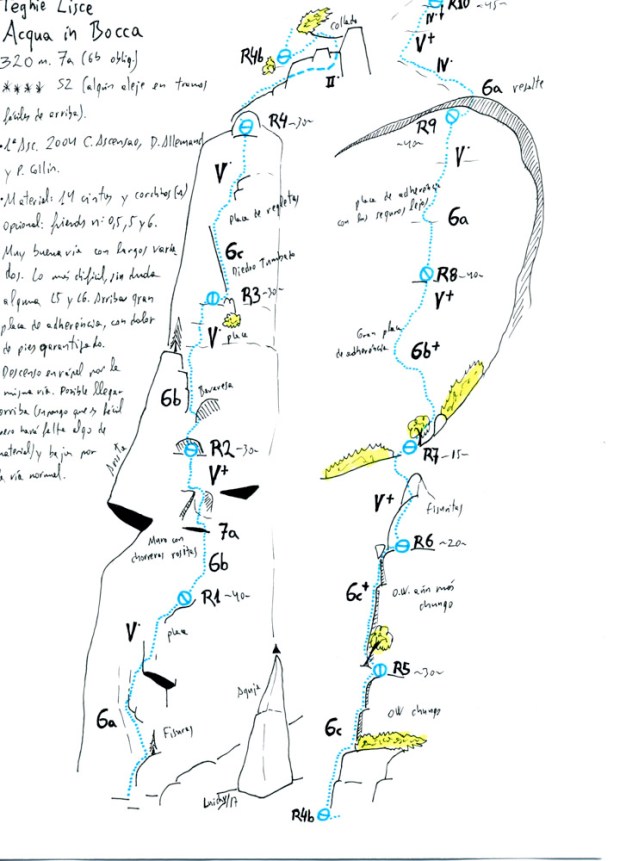 Teghie Lisce
Acqua in Bocca
320 m. 7a (6b oblig.)
**** S2 (algún aleje en tramos
fáciles de arriba).
• 1ª Asc. 2004 C. Ascensao, D. Allemand
y P. Gillin.
• Material: 14 cintas y corditos (a)
opcional: friends nº 0,5, 5 y 6.
Muy buena vía con largos varia
dos. Lo más difícil, sin duda
alguna L5 y L6. Arriba gran
placa de adherencia, con dolor
de pies garantizado.
Descenso en rápel por la
misma vía. Posible llegar
arriba (supongo que es fácil
pero hará falta algo de
material) y bajar por
la vía normal.
collado
R4b
II
R4 ~30~
V
Placa de regletas
6c
Diedro Tumbado
R3 ~30~
V
placa
6b
Bavaresa
Arista
R2 ~30~
V+
7a
Muro con
chorreras rositas
6b
R1 ~40~
V
placa
6a
Fisuras
Aguja
Luichy/17
R10 ~45~
IV+
V+
IV
6a resalte
R9
~40~
V
placa de adherencia
con los seguros lejos
6a
R8 ~40~
V+
Gran placa
de adherencia
6b+
R7 ~15~
V+
fisuritas
R6 ~20~
6c+
O.W. aún más
chungo
R5 ~30~
OW chungo
6c
R4b